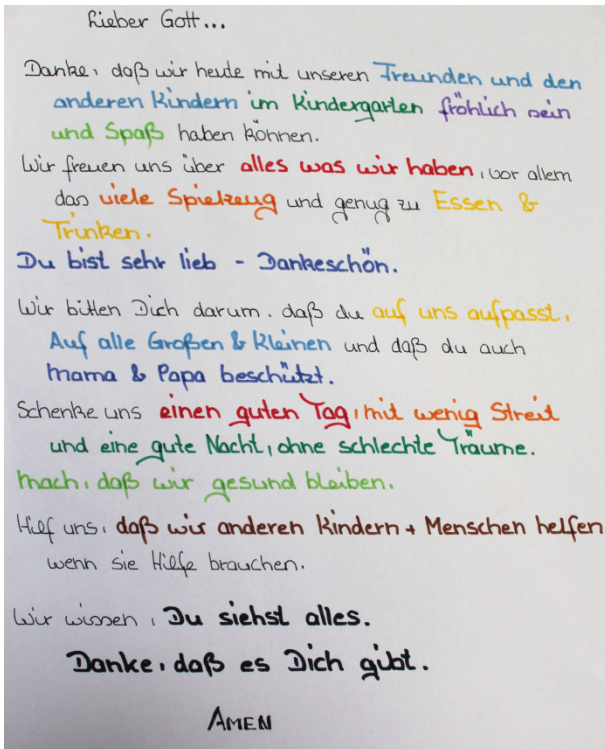 Lieber Gott...
Danke, daß wir heute mit unseren Freunden und den
anderen Kindern im Kindergarten fröhlich sein
und Spaß haben können.
Wir freuen uns über alles was wir haben, vor allem
das viele Spielzeug und genug zu Essen &
Trinken.
Du bist sehr lieb - Dankeschön.
Wir bitten Dich darum, daß du auf uns aufpasst.
Auf alle Großen & Kleinen und daß du auch
Mama & Papa beschützt.
Schenke uns einen guten Tag, mit wenig Streit
und eine gute Nacht, ohne schlechte Träume.
Mach, daß wir gesund bleiben.
Hilf uns, daß wir anderen Kindern + Menschen helfen
wenn sie Hilfe brauchen.
Wir wissen, Du siehst alles.
Danke, daß es Dich gibt.
AMEN